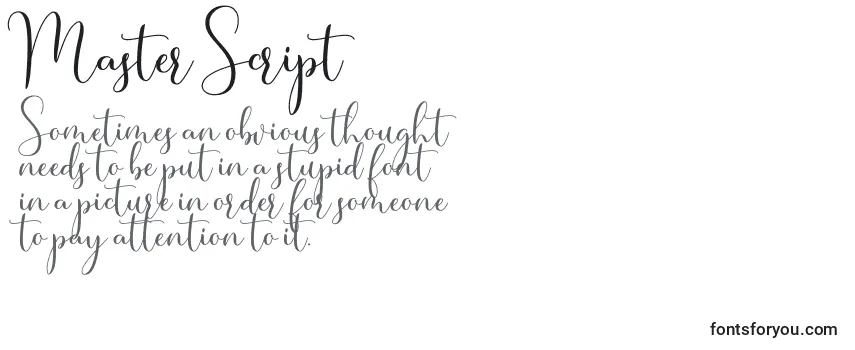 Master Script
Sometimes an obvious thought
needs to be put in a stupid font
in a picture in order for someone
to pay attention to it.
fontsforyou.com